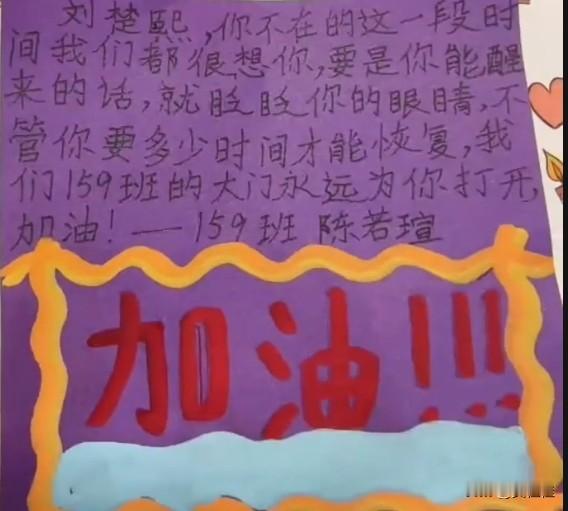 刘楚熙,你不在的这一段时
间我们都很想你,要是你能醒
来的话,就眨眨你的眼睛,不
管你要多少时间才能恢复,我
们159班的大门永远为你打开,
加油!——159班 陈若瑄
加油!!!